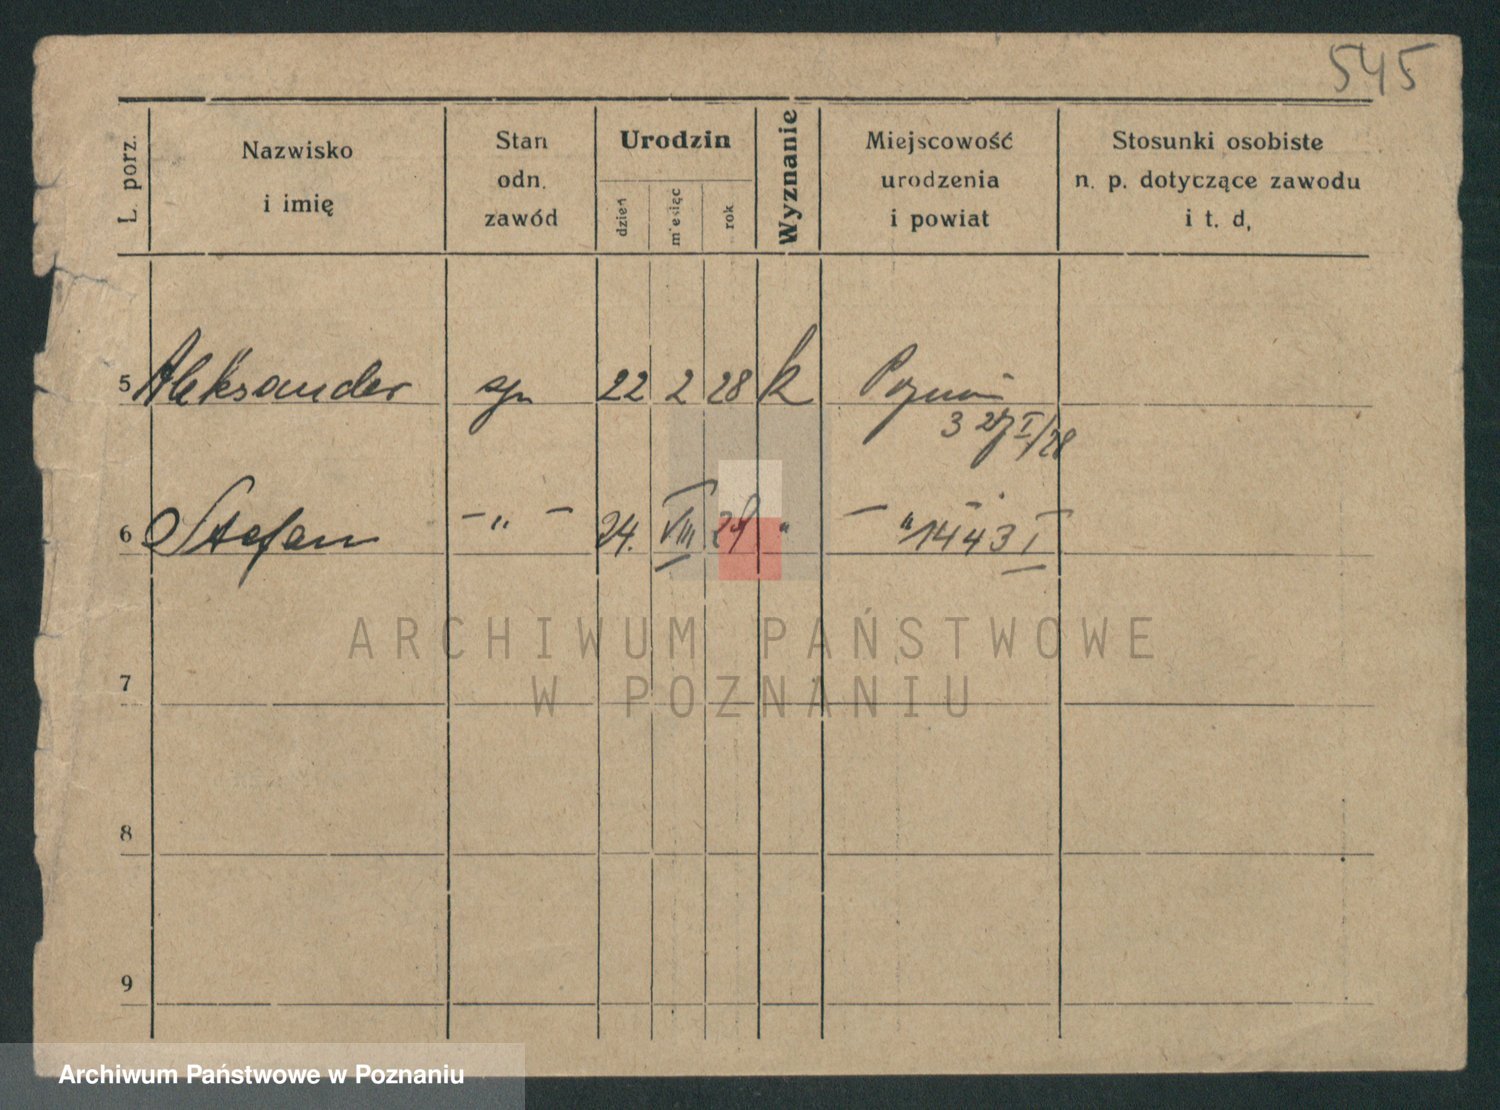 545
L. porz.
Nazwisko
i imię
Stan
odn.
zawód
Urodzin
dzień
miesiąc
rok
Wyznanie
Miejscowość
urodzenia
i powiat
Stosunki osobiste
n. p. dotyczące zawodu
i t. d,
5 Aleksander syn 22 2 28 k Poznań
3 27 I/28
6 Stefan — " — 24. VIII " — " 1443 I
ARCHIWUM PAŃSTWOWE
W POZNANIU
7
8
9
Archiwum Państwowe w Poznaniu